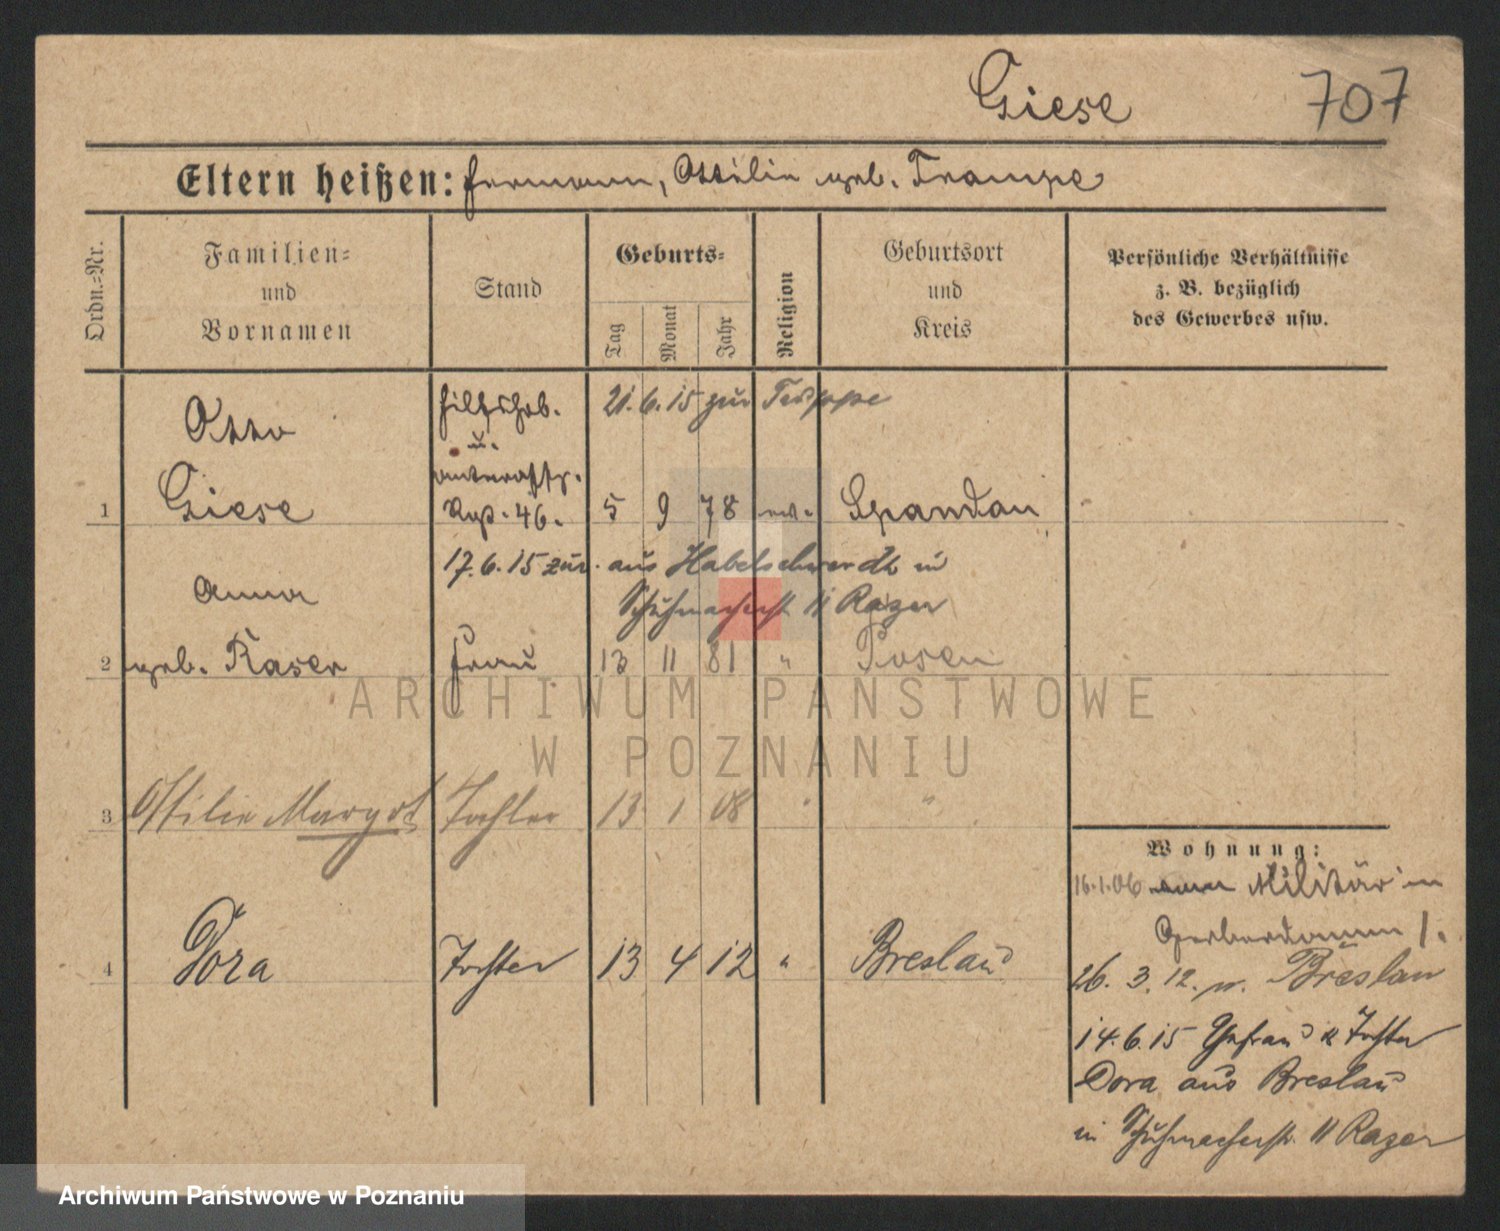 Giese 707
Eltern heißen: Hermann, Ottilie geb. Trampe
Ordn.-Nr.
Familien-
und
Vornamen
Stand
Geburts-
Tag
Monat
Jahr
Religion
Geburtsort
und
Kreis
Persönliche Verhältnisse
z. B. bezüglich
des Gewerbes usw.
Otto
Giese
Hilfshob.
u.
21. 6. 15 zur Truppe
1
Rgt. 46.
5 9 78 ev. Spandau
17. 6. 15 zur. aus Habelschwerdt in
Schuhmacherst 11 Razer
Anna
2 geb. Raser Frau 13 11 81 " Posen
3 Ottilie Margot Tochter 13 1 08 " "
4 Dora Tochter 13 4 12 " Breslau
Wohnung:
16.1.06 Militär in
Gerberdamm 1.
26. 3. 12. n. Breslau
14. 6. 15 Ehefrau u Tochter
Dora aus Breslau
in Schuhmacherstr. 11 Razer
ARCHIWUM PAŃSTWOWE
W POZNANIU
Archiwum Państwowe w Poznaniu